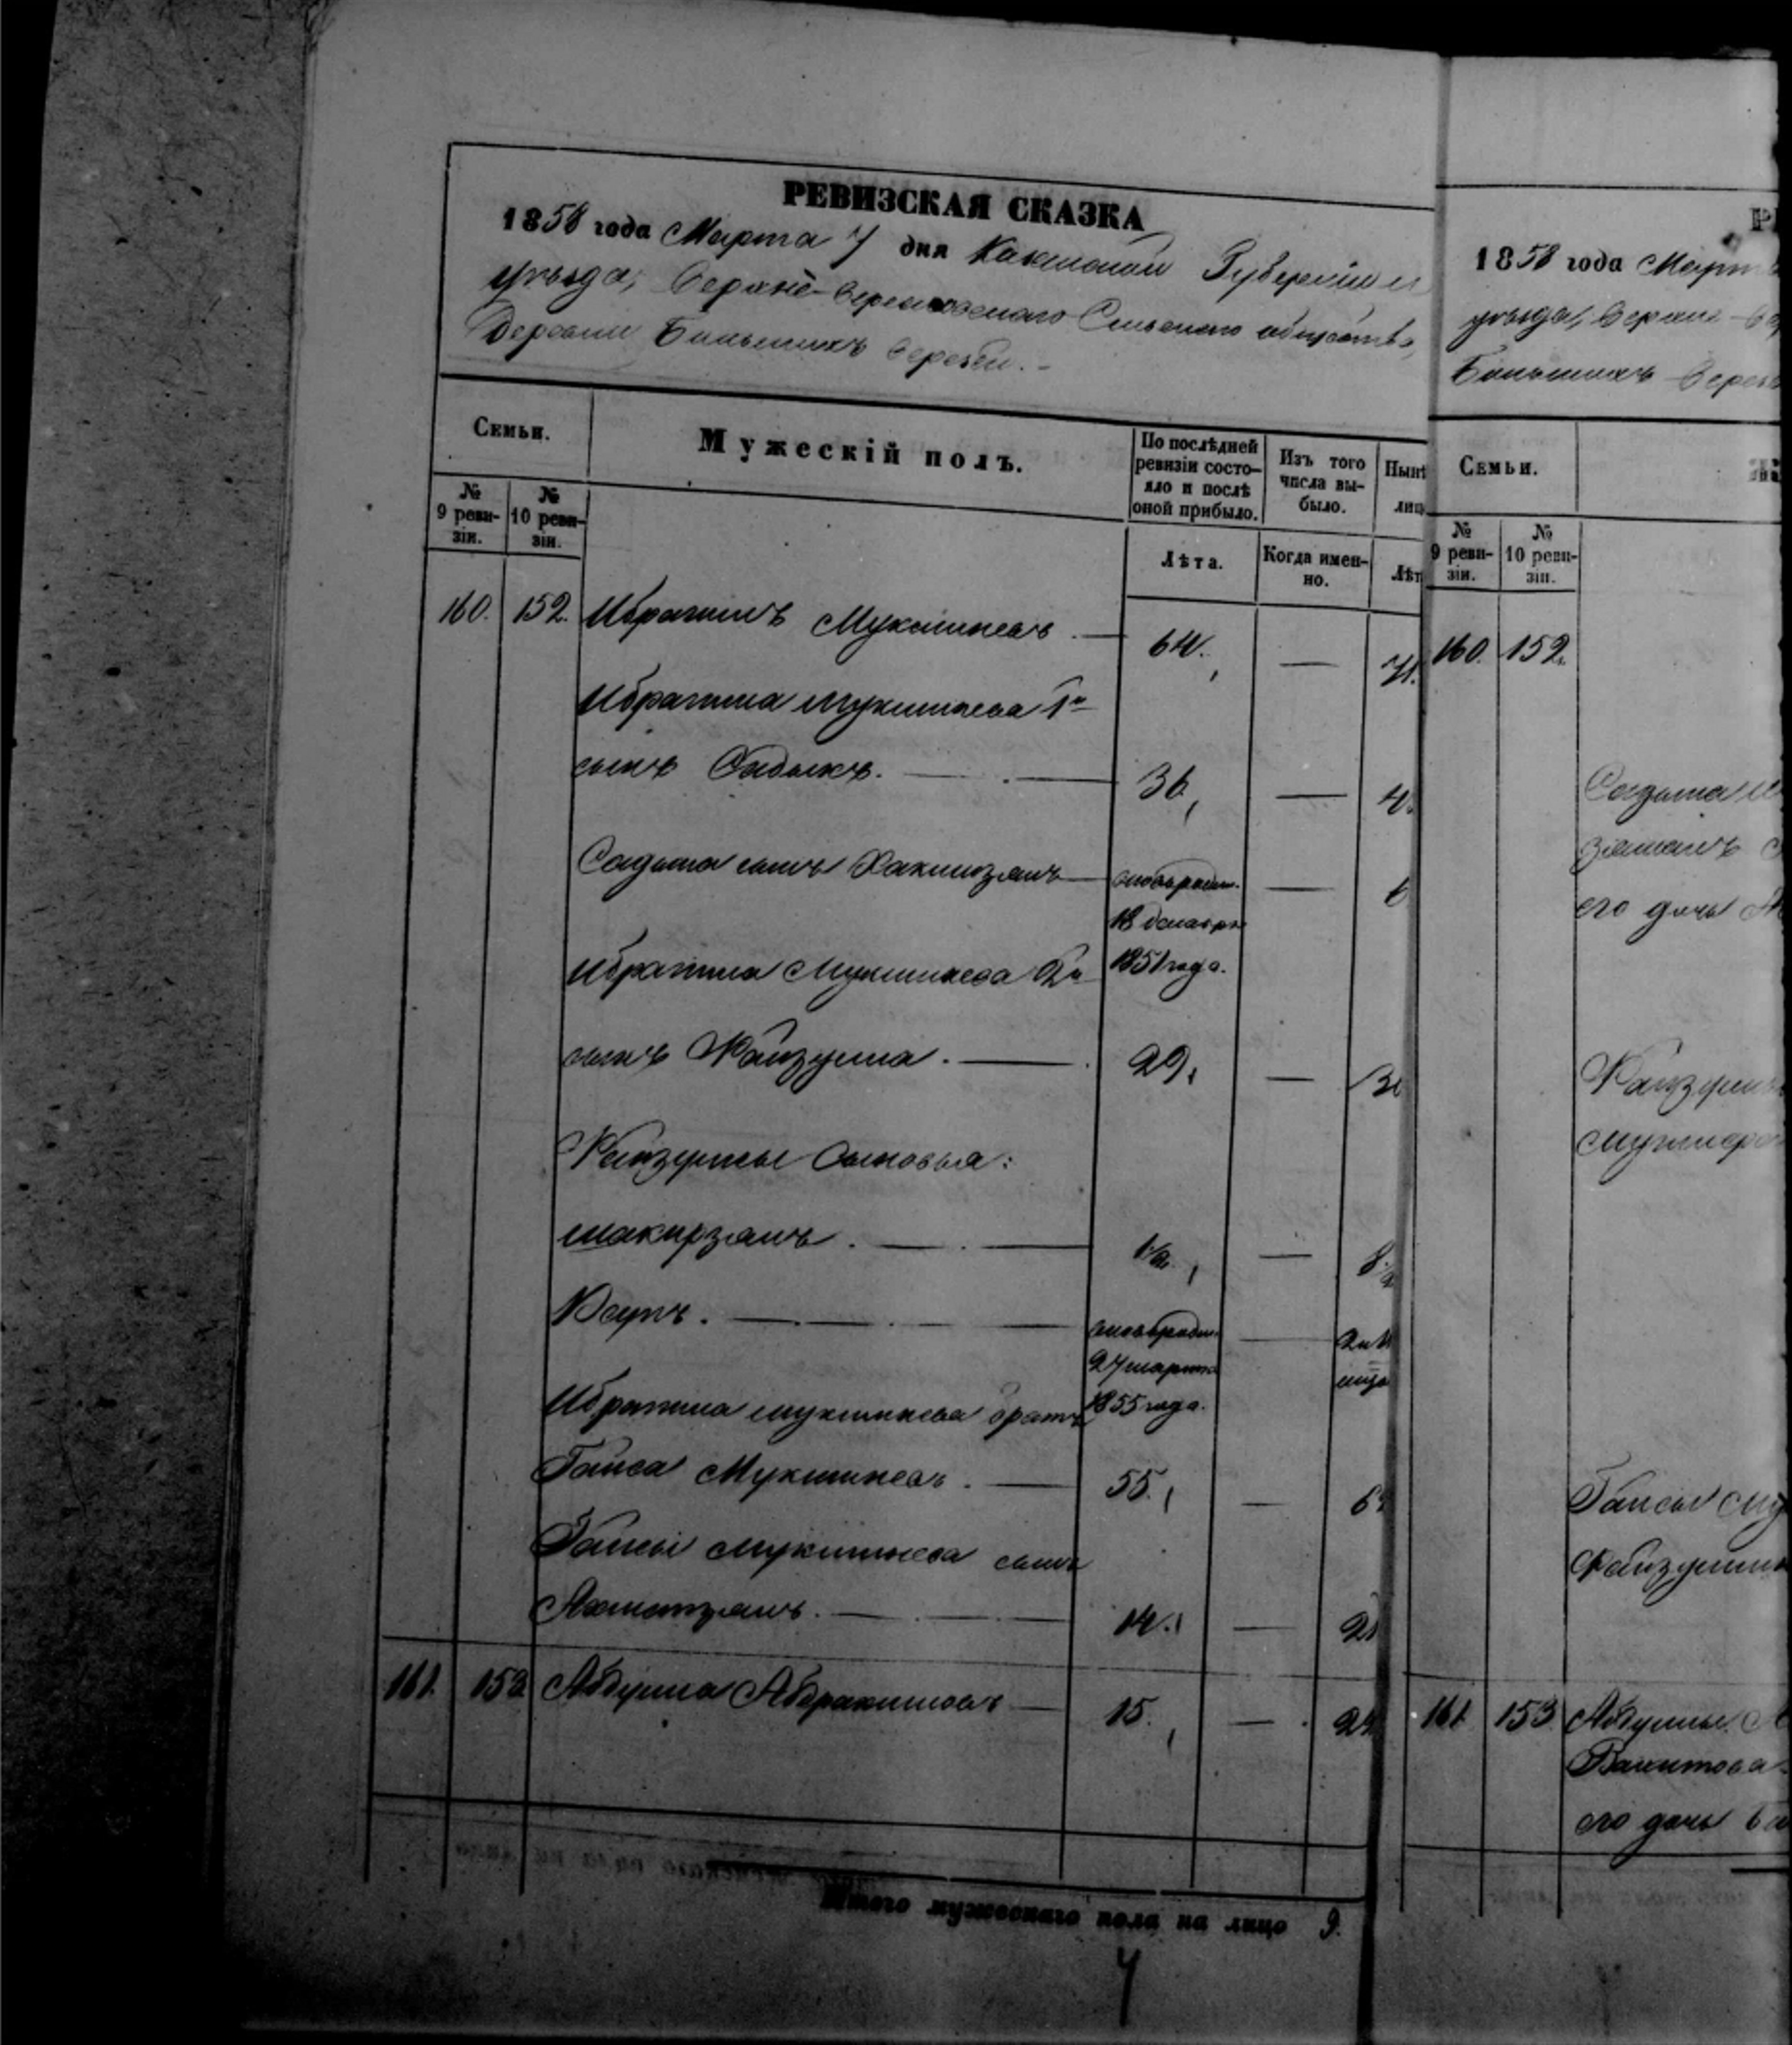 РЕВИЗСКАЯ СКАЗКА
1858 года Марта 7 дня Казанской Губерніи и
уѣзда, Верхне- Сельскаго общества,
Деревни Большихъ Верези.
Семьи.
Мужескій полъ.
По послѣдней ревизіи состояло и послѣ оной прибыло.
Изъ того числа выбыло.
Нынѣ
лиц
№ 9 ревизіи.
№ 10 ревизіи.
Лѣта.
Когда именно.
Лѣт
160. 152. Ибрагимъ Мукминевъ. — 64. — 71.
Ибрагима Мукминева 1й
сынъ Садыкъ. — 36, — 4
Садыка сынъ Хакимзянъ — новорожд. — 6
18 декабря
1851 года.
Ибрагима Мукминева 2й
сынъ Файзулла. — 29. — 3
Файзуллы сыновья:
Шакирзянъ. — 1/2. — 8
Юсупъ. — новорожд. —
27 марта
1855 года.
Ибрагима Мукминева братъ
Гайса Мукминевъ. — 55. — 6
Гайсы Мукминева сынъ
Ахметзянъ. — 14. — 21
161. 153 Абдулла Абдракимовъ — 15. — 22
Итого мужескаго пола на лицо 9.
Р
1858 года Март
уѣзда, Верхне-
Большихъ Верез
Семьи.
№ 9 ревизіи.
№ 10 ревизіи.
160. 152.
Садыка И
его дочь
Файзуллы
Гайсы Му
Файзулл
161 153 Абдуллы А
его дочь